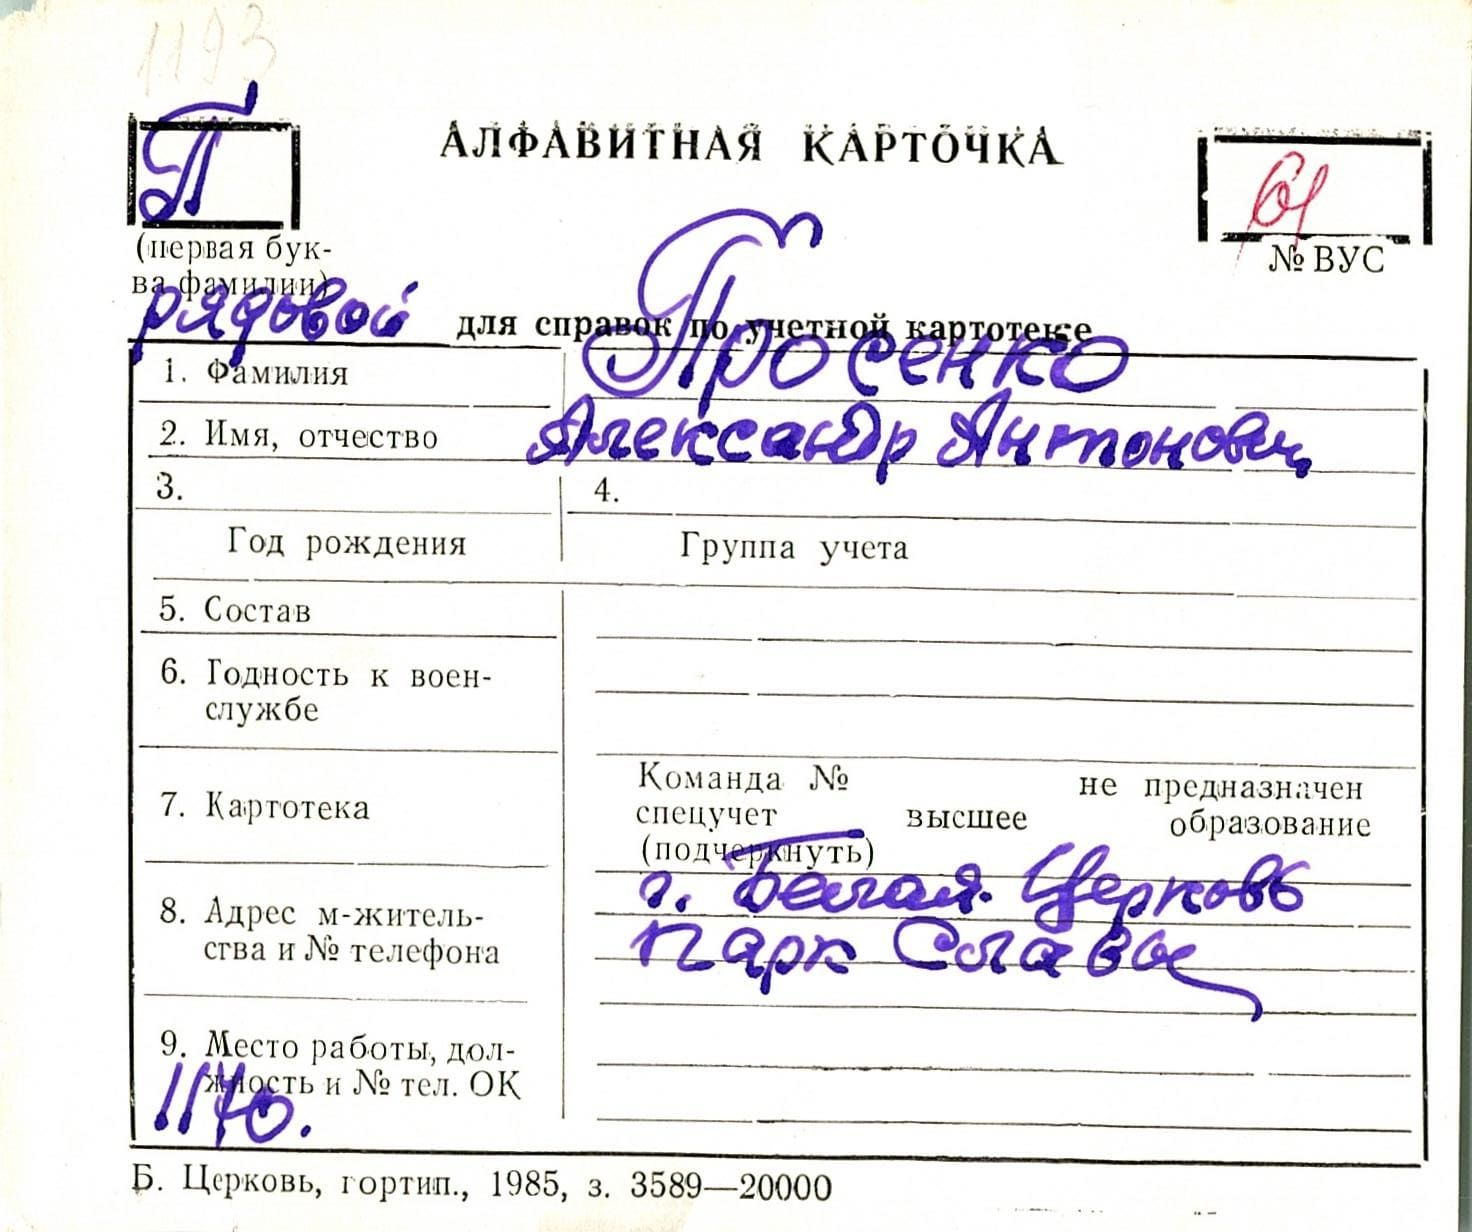 1193
П
АЛФАВИТНАЯ КАРТОЧКА
61
(первая бук-
ва фамилии)
№ ВУС
рядовой
для справок по учетной картотеке
1. Фамилия Просенко
2. Имя, отчество Александр Антонович
3. 4.
Год рождения Группа учета
5. Состав
6. Годность к воен-
службе
7. Картотека
Команда № не предназначен
спецучет высшее образование
(подчеркнуть)
8. Адрес м-житель-
ства и № телефона
г. Белая Церковь
Парк Славы
9. Место работы, дол-
жность и № тел. ОК
Б. Церковь, гортип., 1985, з. 3589—20000